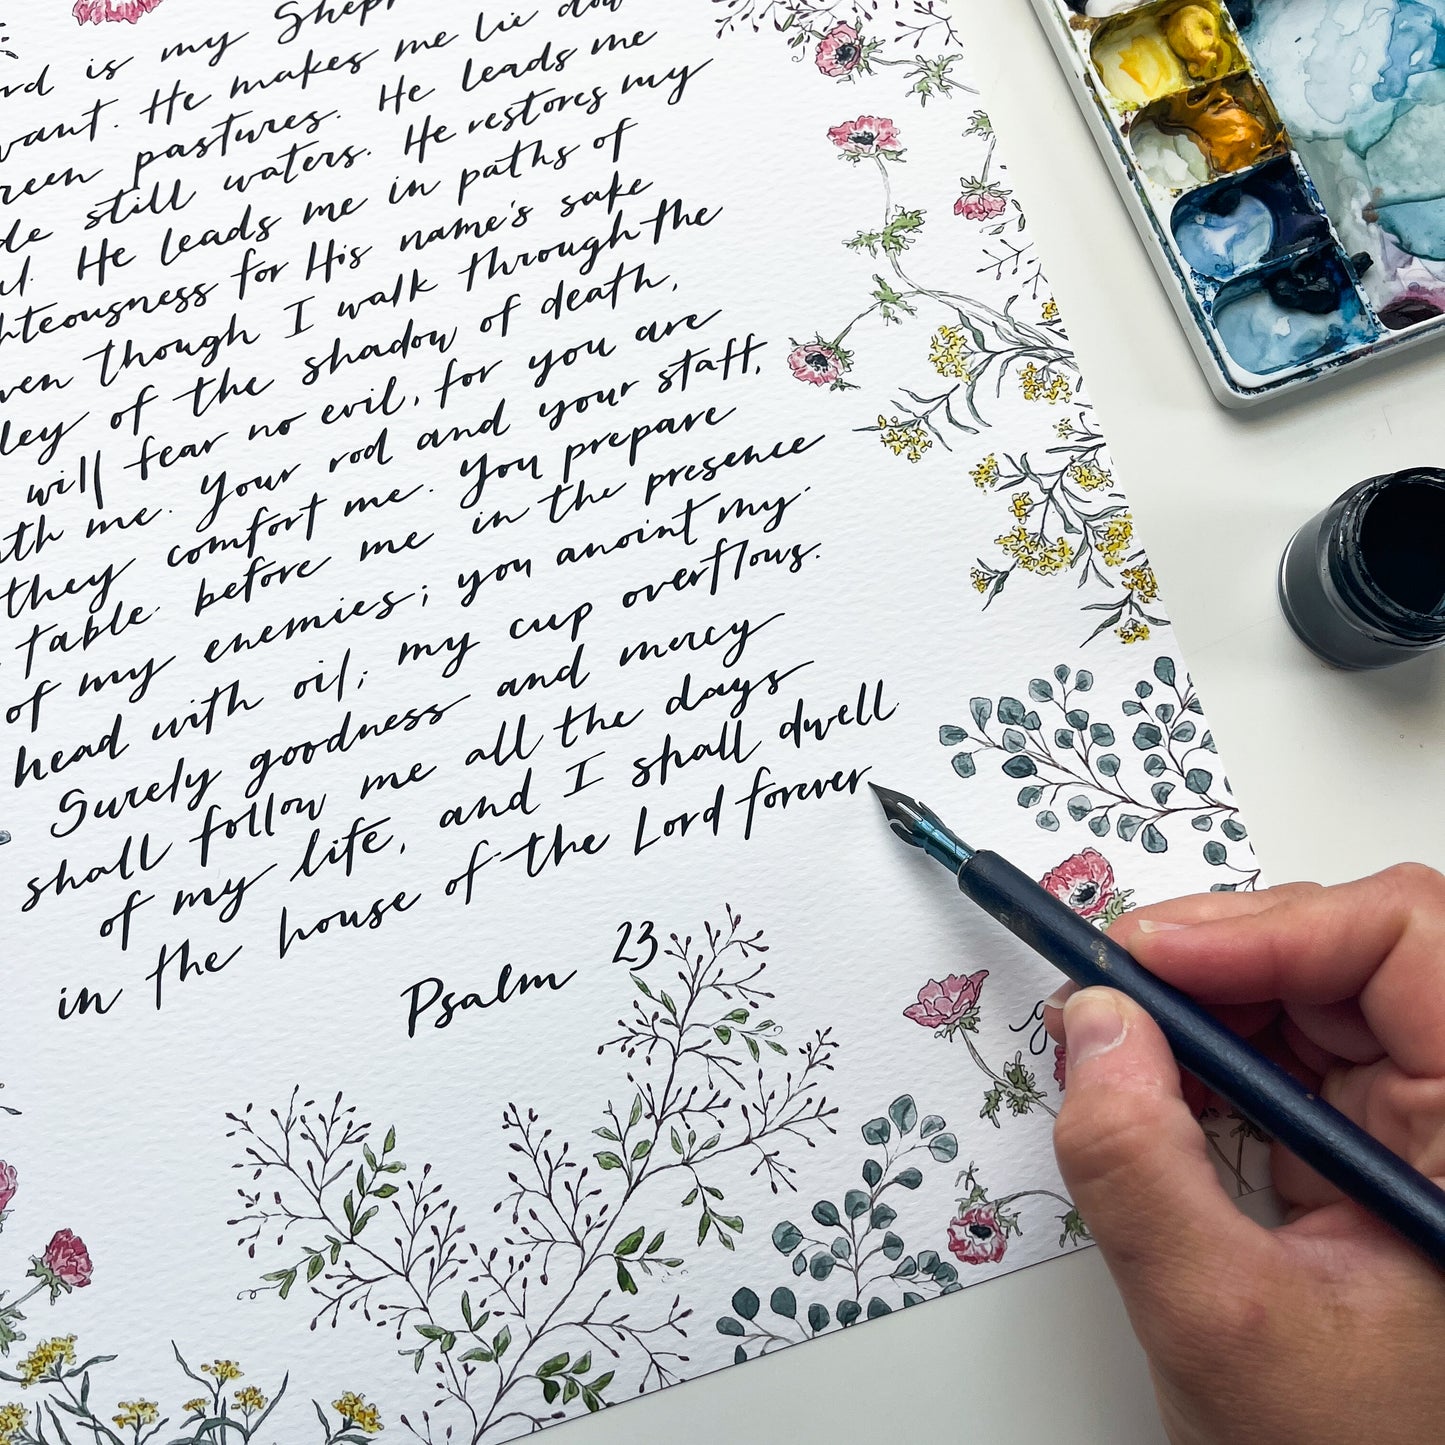 is my
want. He makes me lie
pastures. He leads me
still waters. He restores my
He leads me in paths of
for His name's sake
though I walk through the
of the shadow of death,
will fear no evil, for you are
me. Your rod and your staff,
they comfort me. You prepare
table before me in the presence
of my enemies; you anoint my
head with oil; my cup overflows.
Surely goodness and mercy
shall follow me all the days
of my life, and I shall dwell
in the house of the Lord forever
Psalm 23